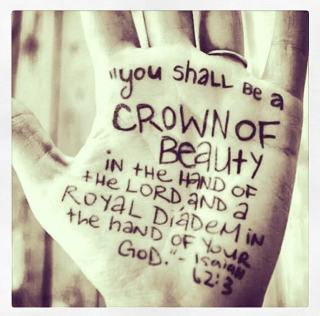 "you shall be a
CROWN OF
BeautY
in the HAND OF
the LORD, AND a
ROYAL DIADEM in
the hand OF YOUR
GOD." - Isaiah
62:3